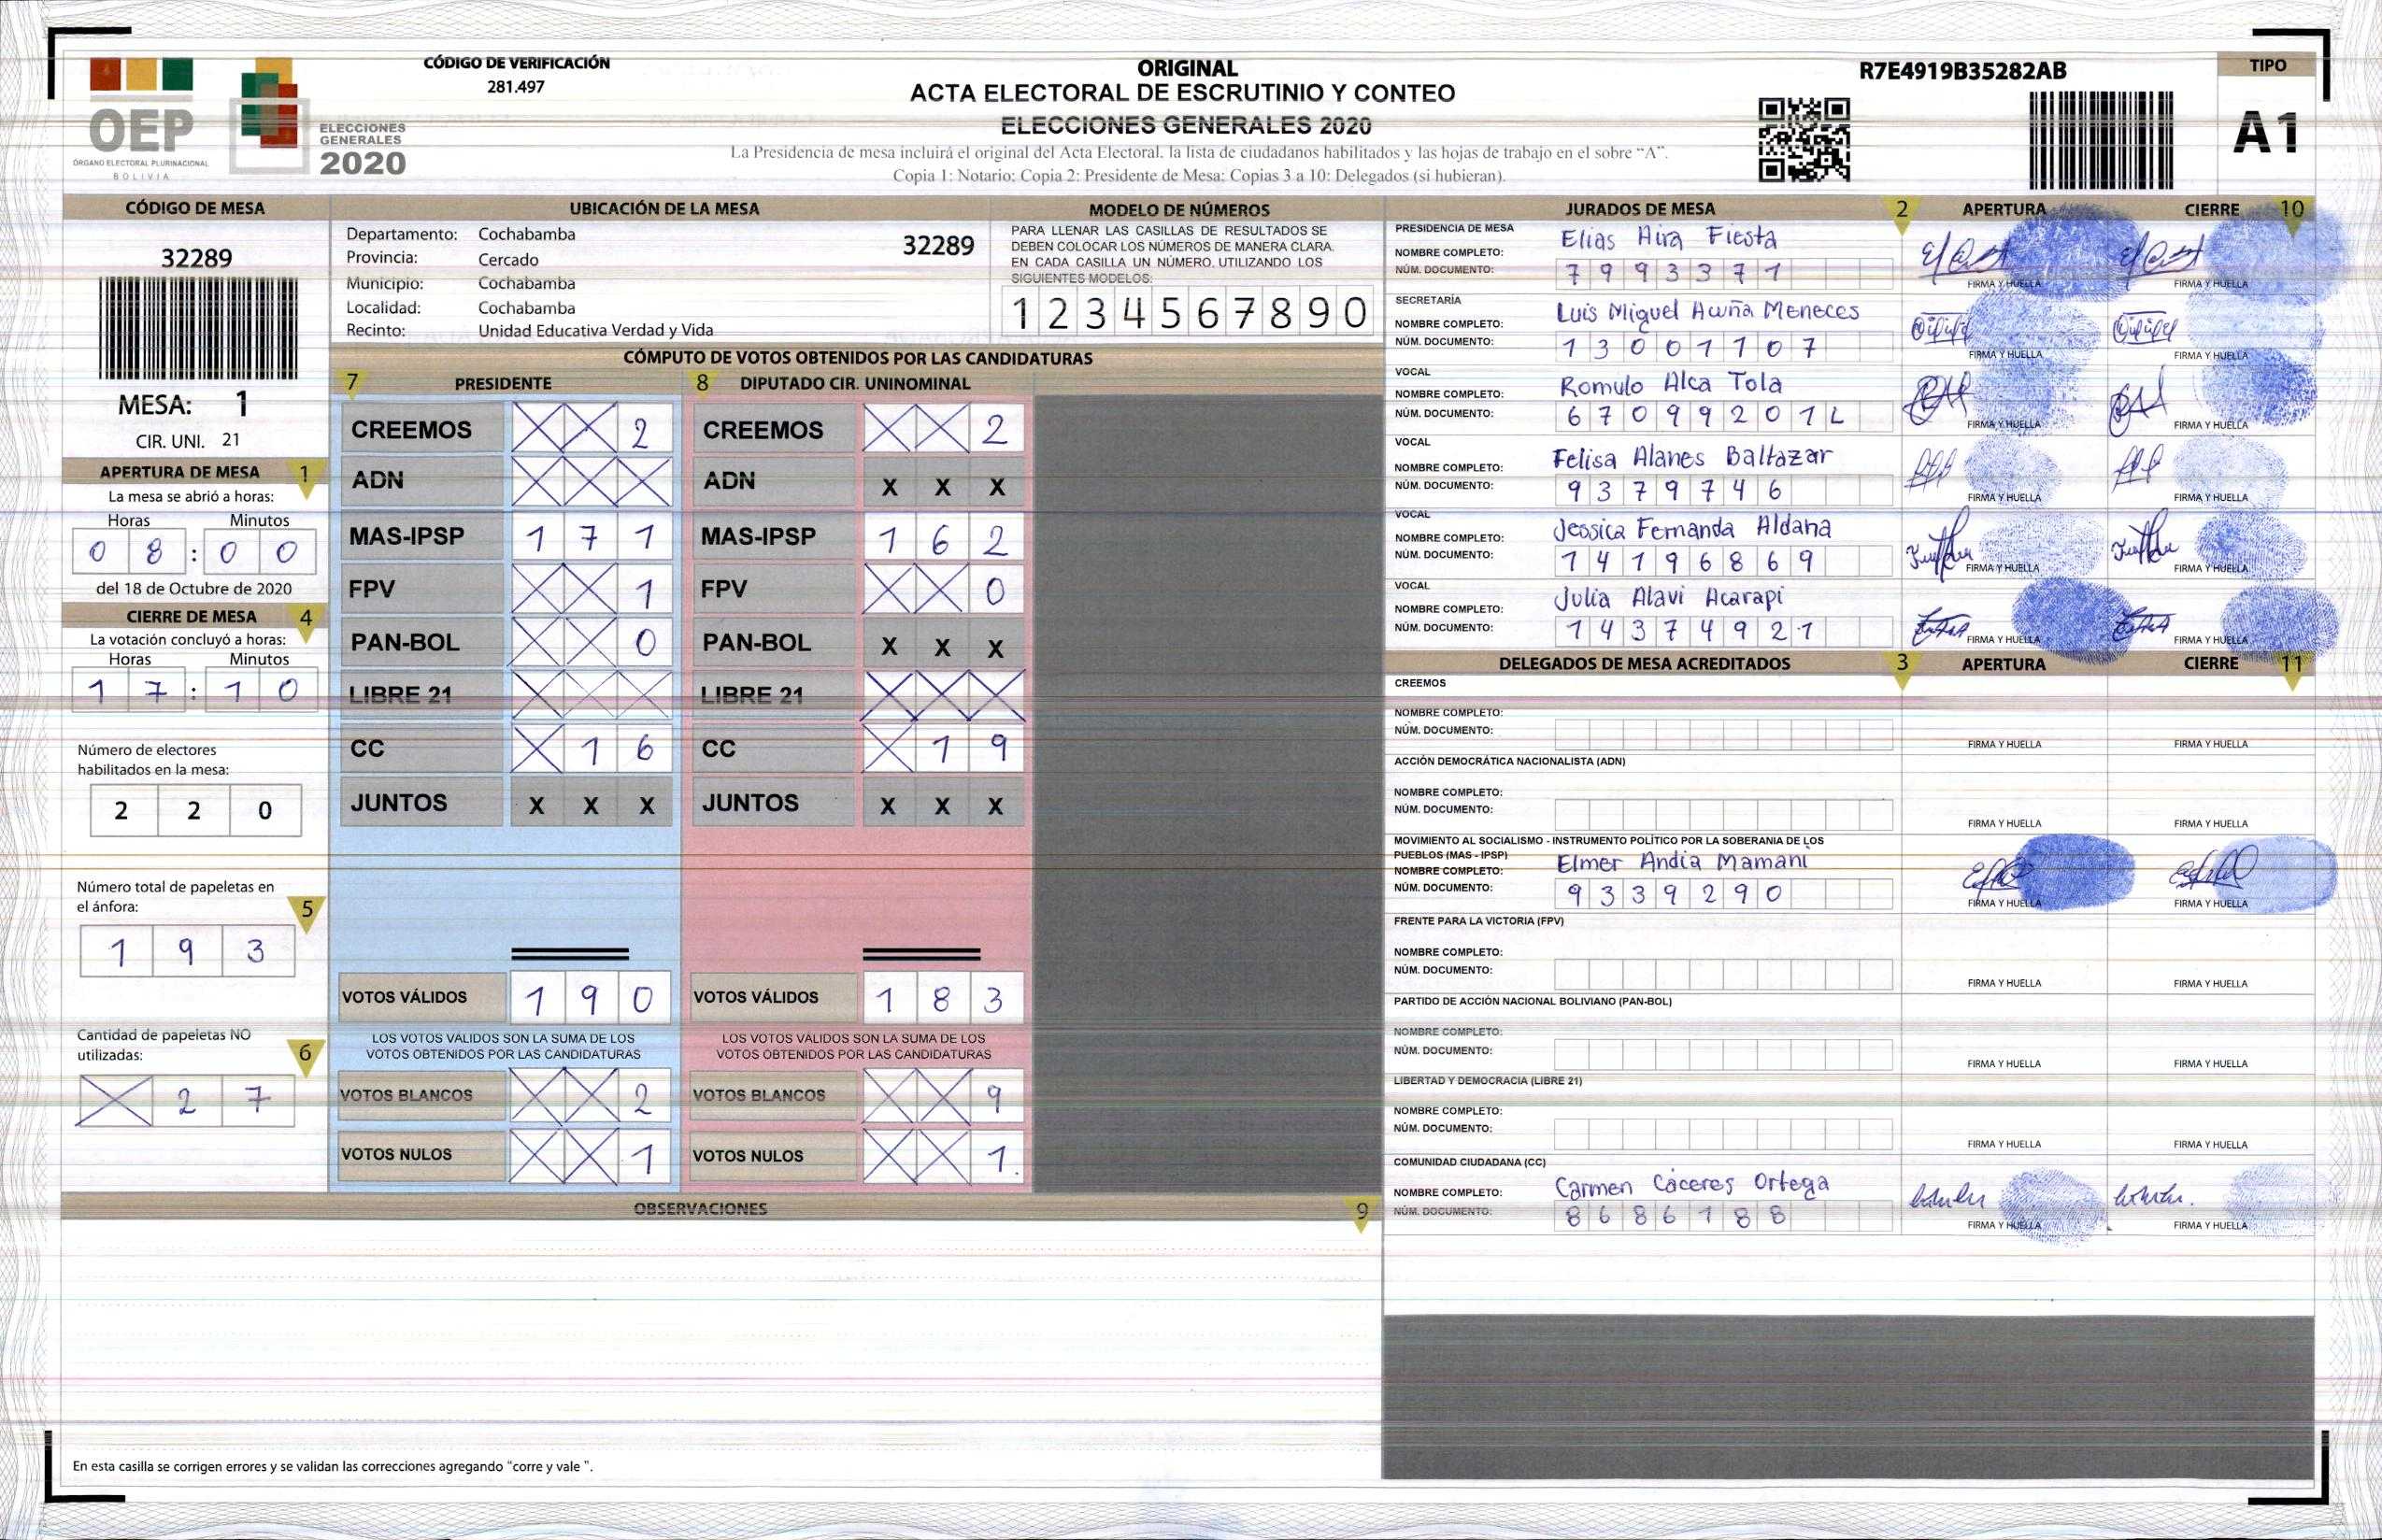 CÓDIGO DE VERIFICACIÓN
281.497
OEP
ÓRGANO ELECTORAL PLURINACIONAL
BOLIVIA
ELECCIONES
GENERALES
2020
ORIGINAL
ACTA ELECTORAL DE ESCRUTINIO Y CONTEO
ELECCIONES GENERALES 2020
La Presidencia de mesa incluirá el original del Acta Electoral, la lista de ciudadanos habilitados y las hojas de trabajo en el sobre “A”.
Copia 1: Notario; Copia 2: Presidente de Mesa; Copias 3 a 10: Delegados (si hubieran).
R7E4919B35282AB
TIPO
A1
CÓDIGO DE MESA
32289
MESA: 1
CIR. UNI. 21
APERTURA DE MESA 1
La mesa se abrió a horas:
Horas Minutos
0 8 : 0 0
del 18 de Octubre de 2020
CIERRE DE MESA 4
La votación concluyó a horas:
Horas Minutos
1 7 : 1 0
Número de electores
habilitados en la mesa:
2 2 0
Número total de papeletas en
el ánfora: 5
1 9 3
Cantidad de papeletas NO
utilizadas: 6
X 2 7
UBICACIÓN DE LA MESA
Departamento: Cochabamba
32289
Provincia: Cercado
Municipio: Cochabamba
Localidad: Cochabamba
Recinto: Unidad Educativa Verdad y Vida
MODELO DE NÚMEROS
PARA LLENAR LAS CASILLAS DE RESULTADOS SE
DEBEN COLOCAR LOS NÚMEROS DE MANERA CLARA.
EN CADA CASILLA UN NÚMERO, UTILIZANDO LOS
SIGUIENTES MODELOS:
1 2 3 4 5 6 7 8 9 0
CÓMPUTO DE VOTOS OBTENIDOS POR LAS CANDIDATURAS
7 PRESIDENTE 8 DIPUTADO CIR. UNINOMINAL
CREEMOS X X 2 CREEMOS X X 2
ADN X X X ADN X X X
MAS-IPSP 1 7 1 MAS-IPSP 1 6 2
FPV X X 1 FPV X X 0
PAN-BOL X X 0 PAN-BOL X X X
LIBRE 21 X X X LIBRE 21 X X X
CC X 1 6 CC X 1 9
JUNTOS X X X JUNTOS X X X
VOTOS VÁLIDOS 1 9 0 VOTOS VÁLIDOS 1 8 3
LOS VOTOS VÁLIDOS SON LA SUMA DE LOS LOS VOTOS VÁLIDOS SON LA SUMA DE LOS
VOTOS OBTENIDOS POR LAS CANDIDATURAS VOTOS OBTENIDOS POR LAS CANDIDATURAS
VOTOS BLANCOS X X 2 VOTOS BLANCOS X X 9
VOTOS NULOS X X 1 VOTOS NULOS X X 1.
OBSERVACIONES 9
En esta casilla se corrigen errores y se validan las correcciones agregando “corre y vale ”.
JURADOS DE MESA 2 APERTURA CIERRE 10
PRESIDENCIA DE MESA
NOMBRE COMPLETO: Elias Aira Fiesta
NÚM. DOCUMENTO: 7 9 9 3 3 7 1
FIRMA Y HUELLA FIRMA Y HUELLA
SECRETARÍA
NOMBRE COMPLETO: Luis Miguel Acuña Meneces
NÚM. DOCUMENTO: 1 3 0 0 1 1 0 7
FIRMA Y HUELLA FIRMA Y HUELLA
VOCAL
NOMBRE COMPLETO: Romulo Alca Tola
NÚM. DOCUMENTO: 6 7 0 9 9 2 0 1 L
FIRMA Y HUELLA FIRMA Y HUELLA
VOCAL
NOMBRE COMPLETO: Felisa Alanes Baltazar
NÚM. DOCUMENTO: 9 3 7 9 7 4 6
FIRMA Y HUELLA FIRMA Y HUELLA
VOCAL
NOMBRE COMPLETO: Jessica Fernanda Aldana
NÚM. DOCUMENTO: 1 4 1 9 6 8 6 9
FIRMA Y HUELLA FIRMA Y HUELLA
VOCAL
NOMBRE COMPLETO: Julia Alavi Acarapi
NÚM. DOCUMENTO: 1 4 3 7 4 9 2 1
FIRMA Y HUELLA FIRMA Y HUELLA
DELEGADOS DE MESA ACREDITADOS 3 APERTURA CIERRE 11
CREEMOS
NOMBRE COMPLETO:
NÚM. DOCUMENTO:
FIRMA Y HUELLA FIRMA Y HUELLA
ACCIÓN DEMOCRÁTICA NACIONALISTA (ADN)
NOMBRE COMPLETO:
NÚM. DOCUMENTO:
FIRMA Y HUELLA FIRMA Y HUELLA
MOVIMIENTO AL SOCIALISMO - INSTRUMENTO POLÍTICO POR LA SOBERANIA DE LOS
PUEBLOS (MAS - IPSP)
NOMBRE COMPLETO: Elmer Andia Mamani
NÚM. DOCUMENTO: 9 3 3 9 2 9 0
FIRMA Y HUELLA FIRMA Y HUELLA
FRENTE PARA LA VICTORIA (FPV)
NOMBRE COMPLETO:
NÚM. DOCUMENTO:
FIRMA Y HUELLA FIRMA Y HUELLA
PARTIDO DE ACCIÓN NACIONAL BOLIVIANO (PAN-BOL)
NOMBRE COMPLETO:
NÚM. DOCUMENTO:
FIRMA Y HUELLA FIRMA Y HUELLA
LIBERTAD Y DEMOCRACIA (LIBRE 21)
NOMBRE COMPLETO:
NÚM. DOCUMENTO:
FIRMA Y HUELLA FIRMA Y HUELLA
COMUNIDAD CIUDADANA (CC)
NOMBRE COMPLETO: Carmen Cáceres Ortega
NÚM. DOCUMENTO: 8 6 8 6 1 8 8
FIRMA Y HUELLA FIRMA Y HUELLA